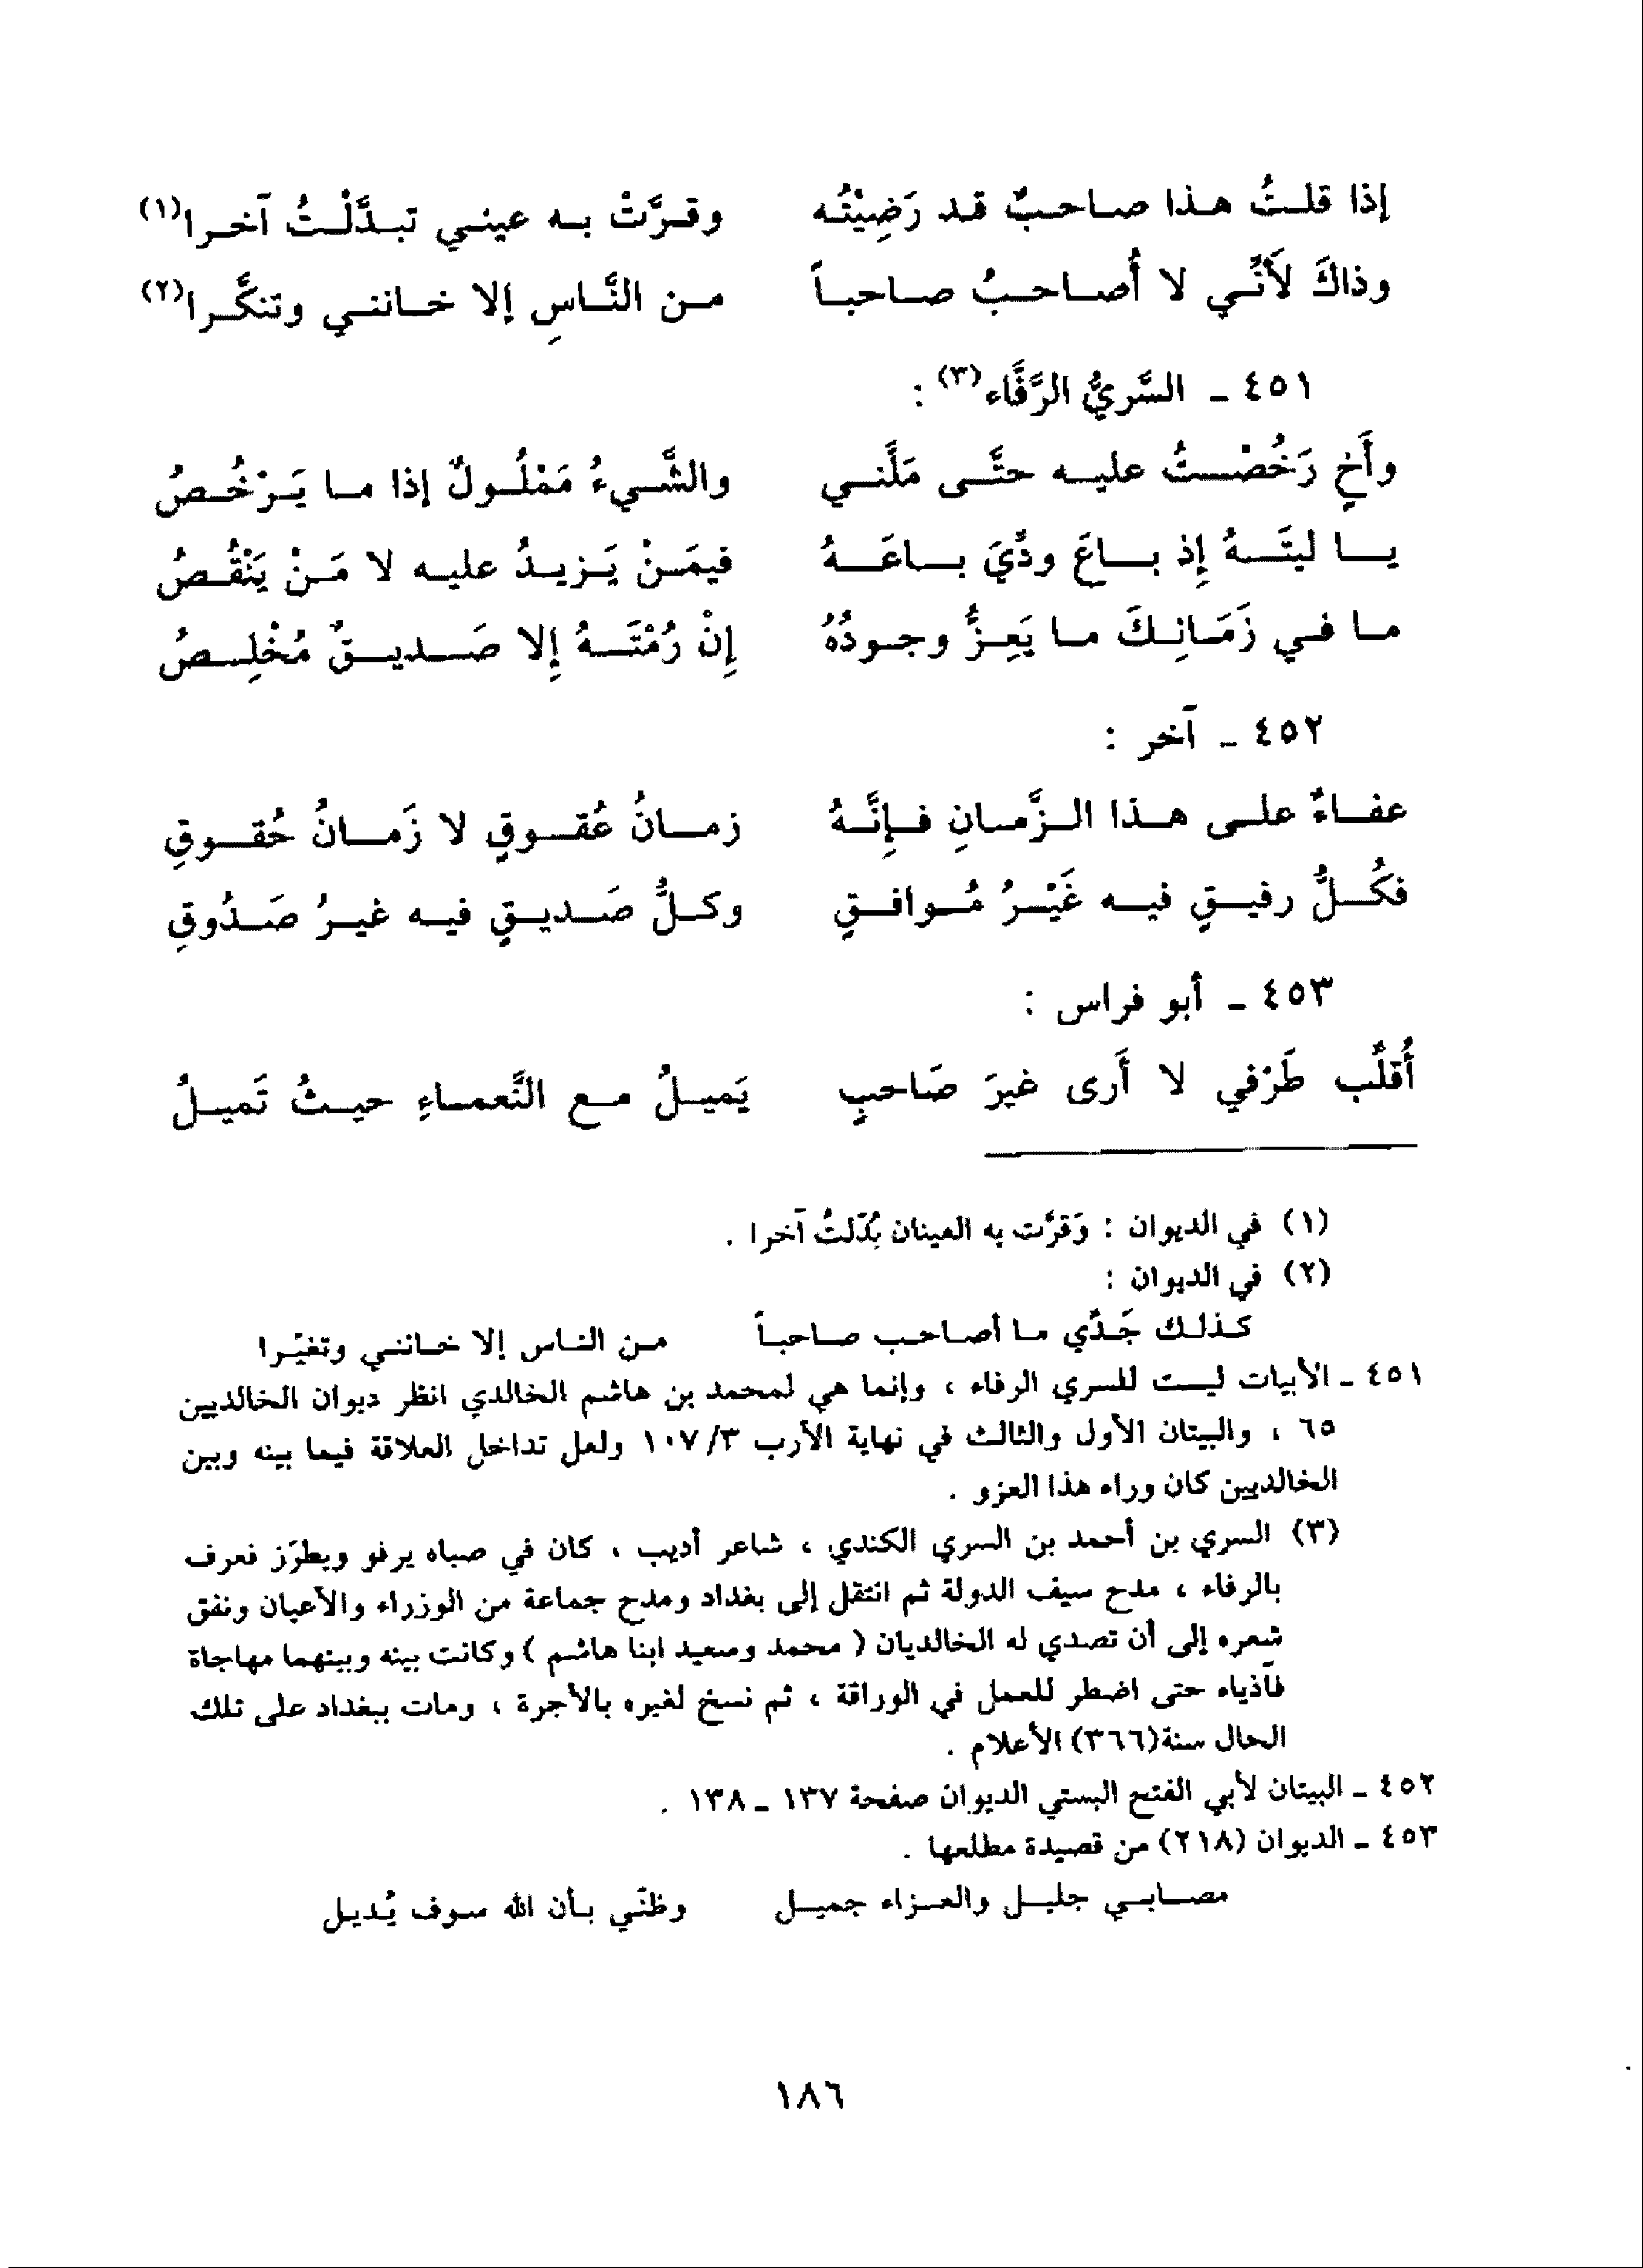 إذا قلتُ هذا صاحبٌ قد رَضِيْتُه وقرَّتْ به عيني تبدَّلْتُ آخرا(١)
وذاكَ لأَنَّي لا أُصاحبُ صاحباً من النَّاسِ إلا خانني وتنكَّرا(٢)
٤٥١ ـ السَّريُّ الرَّفَّاء(٣) :
وأَخٍ رَخُصْتُ عليه حتَّى مَلَّني والشَّيءُ مَمْلُولٌ إذا ما يَرْخُصُ
يا ليتَهُ إِذ باعَ ودَّيَ باعَهُ فيمَنْ يَزيدُ عليه لا مَنْ يَنْقُصُ
ما في زَمَانِكَ ما يَعِزُّ وجودُهُ إِنْ رُمْتَهُ إِلا صَديقٌ مُخْلِصُ
٤٥٢ ـ آخر :
عفاءٌ على هذا الزَّمانِ فإِنَّهُ زمانُ عُقوقٍ لا زَمانُ حُقوقِ
فكُلُّ رفيقٍ فيه غَيْرُ مُوافقٍ وكلُّ صَديقٍ فيه غيرُ صَدُوقِ
٤٥٣ ـ أبو فراس :
أُقلَّب طَرْفي لا أَرى غيرَ صَاحبٍ يَميلُ مع النَّعماءِ حيثُ تَميلُ
(١) في الديوان : وَقرَّت به العينان بُدّلتُ آخرا .
(٢) في الديوان :
كذلك جَدَّي ما أصاحب صاحباً من الناس إلا خانني وتغيّرا
٤٥١ ـ الأبيات ليست للسري الرفاء ، وإنما هي لمحمد بن هاشم الخالدي انظر ديوان الخالديين
٦٥ ، والبيتان الأول والثالث في نهاية الأرب ١٠٧/٣ ولعل تداخل العلاقة فيما بينه وبين
الخالديين كان وراء هذا العزو .
(٣) السري بن أحمد بن السري الكندي ، شاعر أديب ، كان في صباه يرفو ويطرّز فعرف
بالرفاء ، مدح سيف الدولة ثم انتقل إلى بغداد ومدح جماعة من الوزراء والأعيان ونفق
شعره إلى أن تصدي له الخالديان ( محمد وسعيد ابنا هاشم ) وكانت بينه وبينهما مهاجاة
فآذياه حتى اضطر للعمل في الوراقة ، ثم نسخ لغيره بالأجرة ، ومات ببغداد على تلك
الحال سنة(٣٦٦) الأعلام .
٤٥٢ ـ البيتان لأبي الفتح البستي الديوان صفحة ١٣٧ ـ ١٣٨ .
٤٥٣ ـ الديوان (٢١٨) من قصيدة مطلعها .
مصابي جليل والعزاء جميل وظنّي بأن الله سوف يُديل
١٨٦